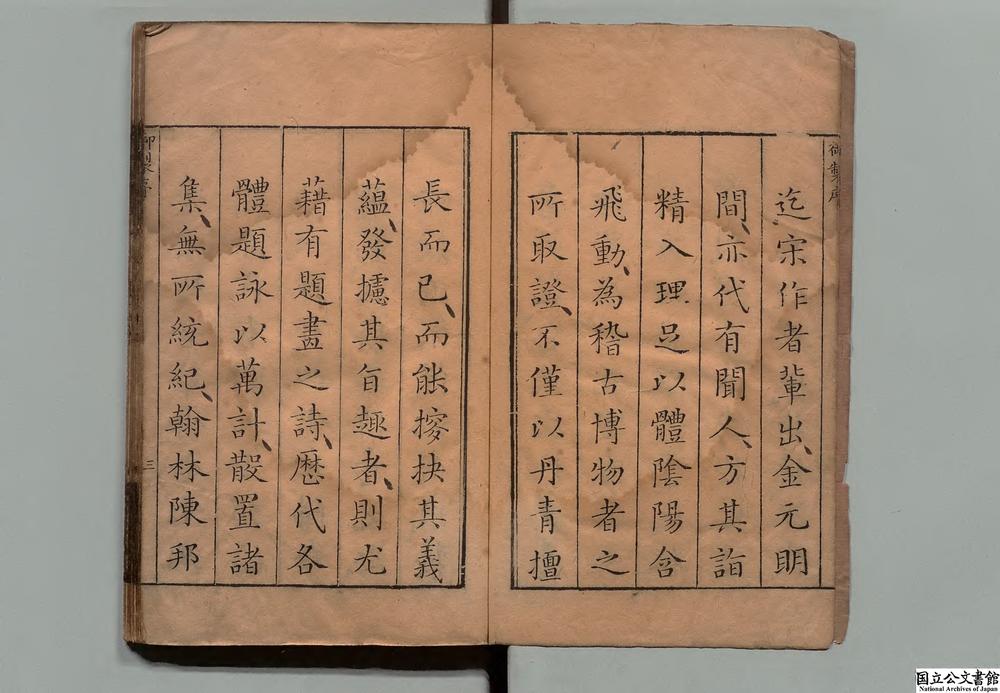 御製序
迄宋作者輩出、金元明
間、亦代有聞人、方其詣
精入理足以體陰陽含
飛動、為稽古博物者之
所取證、不僅以丹青擅
長而已、而能摉抉其義
蘊、發攄其旨趣者、則尤
藉有題畫之詩、歷代各
體題詠以萬計、散置諸
集、無所統紀、翰林陳邦
御製序
三
国立公文書館
National Archives of Japan